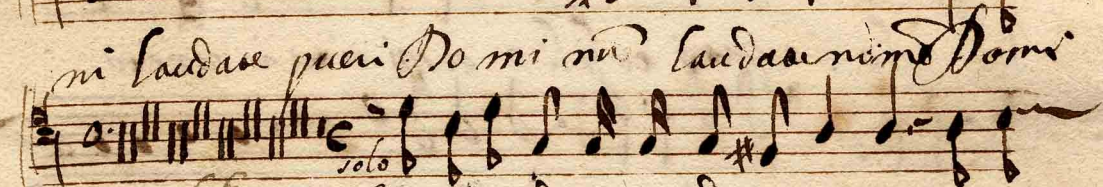 ni laudate pueri Do mi nũ laudate nomẽ Domi
solo